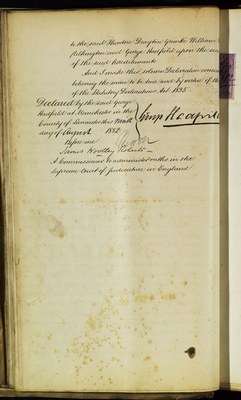 to the said Thornton Drayton Grimke William
Pilkington and George Hadfield upon the
of the said hereditaments
And I make this solemn Declaration
believing the same to be true and by virtue of the
of the Statutory Declarations Act 1835
Declared by the said George
Hadfield at Manchester in the
County of Lancaster this ninth
day of August 1882
Before me
James Woolley
A Commissioner to administer oaths in the
Supreme Court of Judicature in England